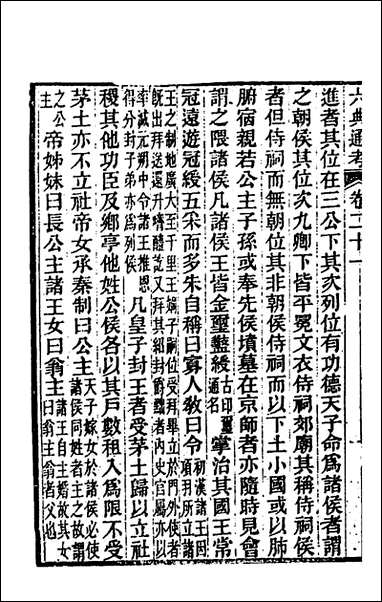 六典通考 卷二十一
進者其位在三公下其次列位有功德天子命爲諸侯者謂
之朝侯其位次九卿下皆平冕文衣侍祠郊廟其稱侍祠侯
者但侍祠而無朝位其非朝侯侍祠而以下土小國或以肺
腑宿親若公主子孫或奉先侯墳墓在京師者亦隨時見會
謂之隈諸侯凡諸侯王皆金璽盭綬古印璽通名掌治其國王常
冠遠遊冠綬五采而多朱自稱曰寡人敎曰令初漢諸王因項羽所立諸
王之制地廣大至千里王端子嗣位受拜畢立於門外使者
旣出拜送還升階謝訖又拜其紹封爵者內史官屬亦以
率減元朔中令諸王推恩得分封子弟亦爲列侯凡皇子封王者受茅土歸以立社
稷其他功臣及鄉亭他姓公侯各以其戶數租入爲限不受
茅土亦不立社帝女承秦制曰公主天子嫁女於諸侯必使諸侯同姓者主之故謂
之公主帝姊妹曰長公主諸王女曰翁主諸王自主婚故其女曰翁主翁者父也